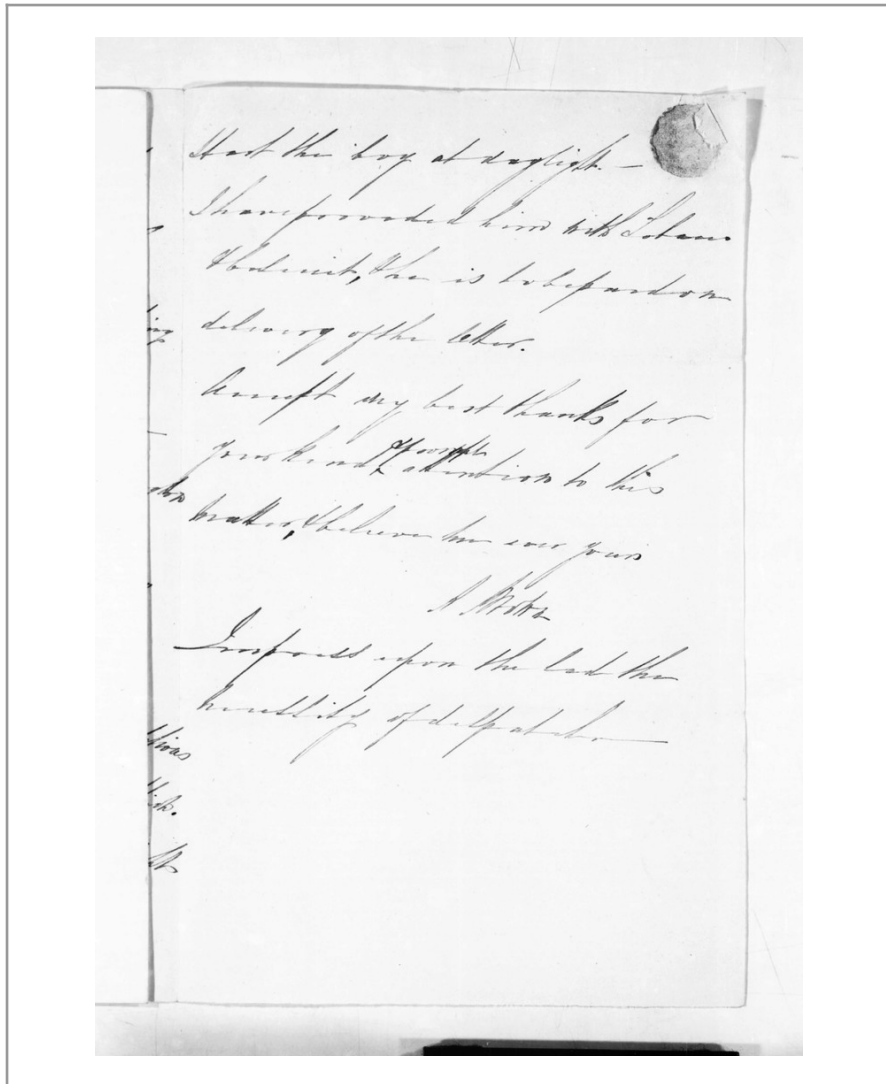 Start the boy at daylight. —
I have provided him with Tobacco
& biscuit, & he is to be paid on
delivery of the letter.
Accept my best thanks for
& prompt
your kind attention to this
matter, & believe me ever yours
Impress upon the lad the
necessity of despatch —